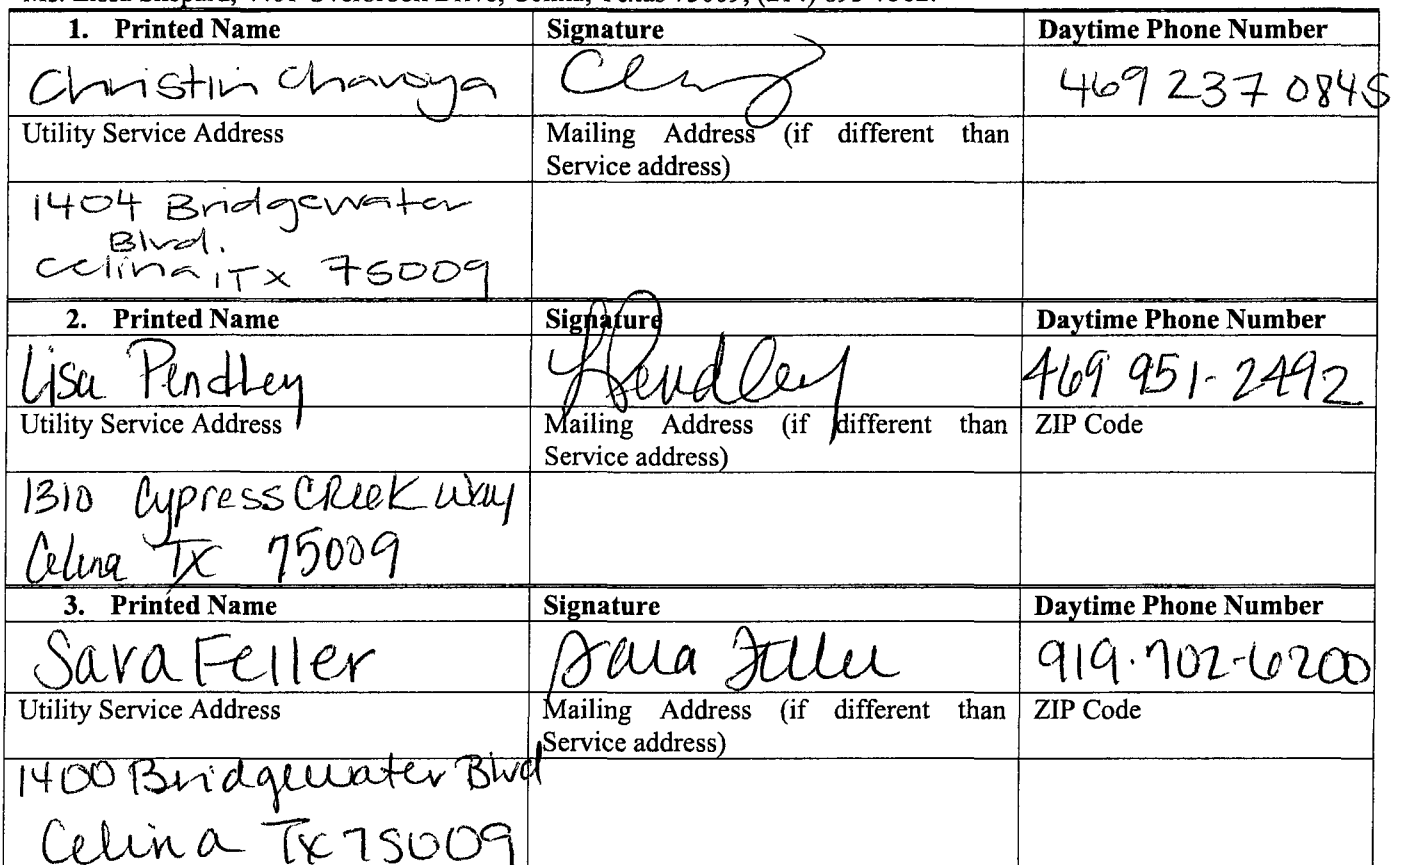 1. Printed Name Signature Daytime Phone Number
Christin Chavoya 469 237 0845
Utility Service Address Mailing Address (if different than
Service address)
1404 Bridgewater
Blvd.
Celina, TX 75009
2. Printed Name Signature Daytime Phone Number
Lisa Pendley LPendley 469 951-2492
Utility Service Address Mailing Address (if different than ZIP Code
Service address)
1310 Cypress Creek Way
Celina TX 75009
3. Printed Name Signature Daytime Phone Number
Sara Feller Sara Feller 919-702-6200
Utility Service Address Mailing Address (if different than ZIP Code
Service address)
1400 Bridgewater Blvd
Celina TX 75009